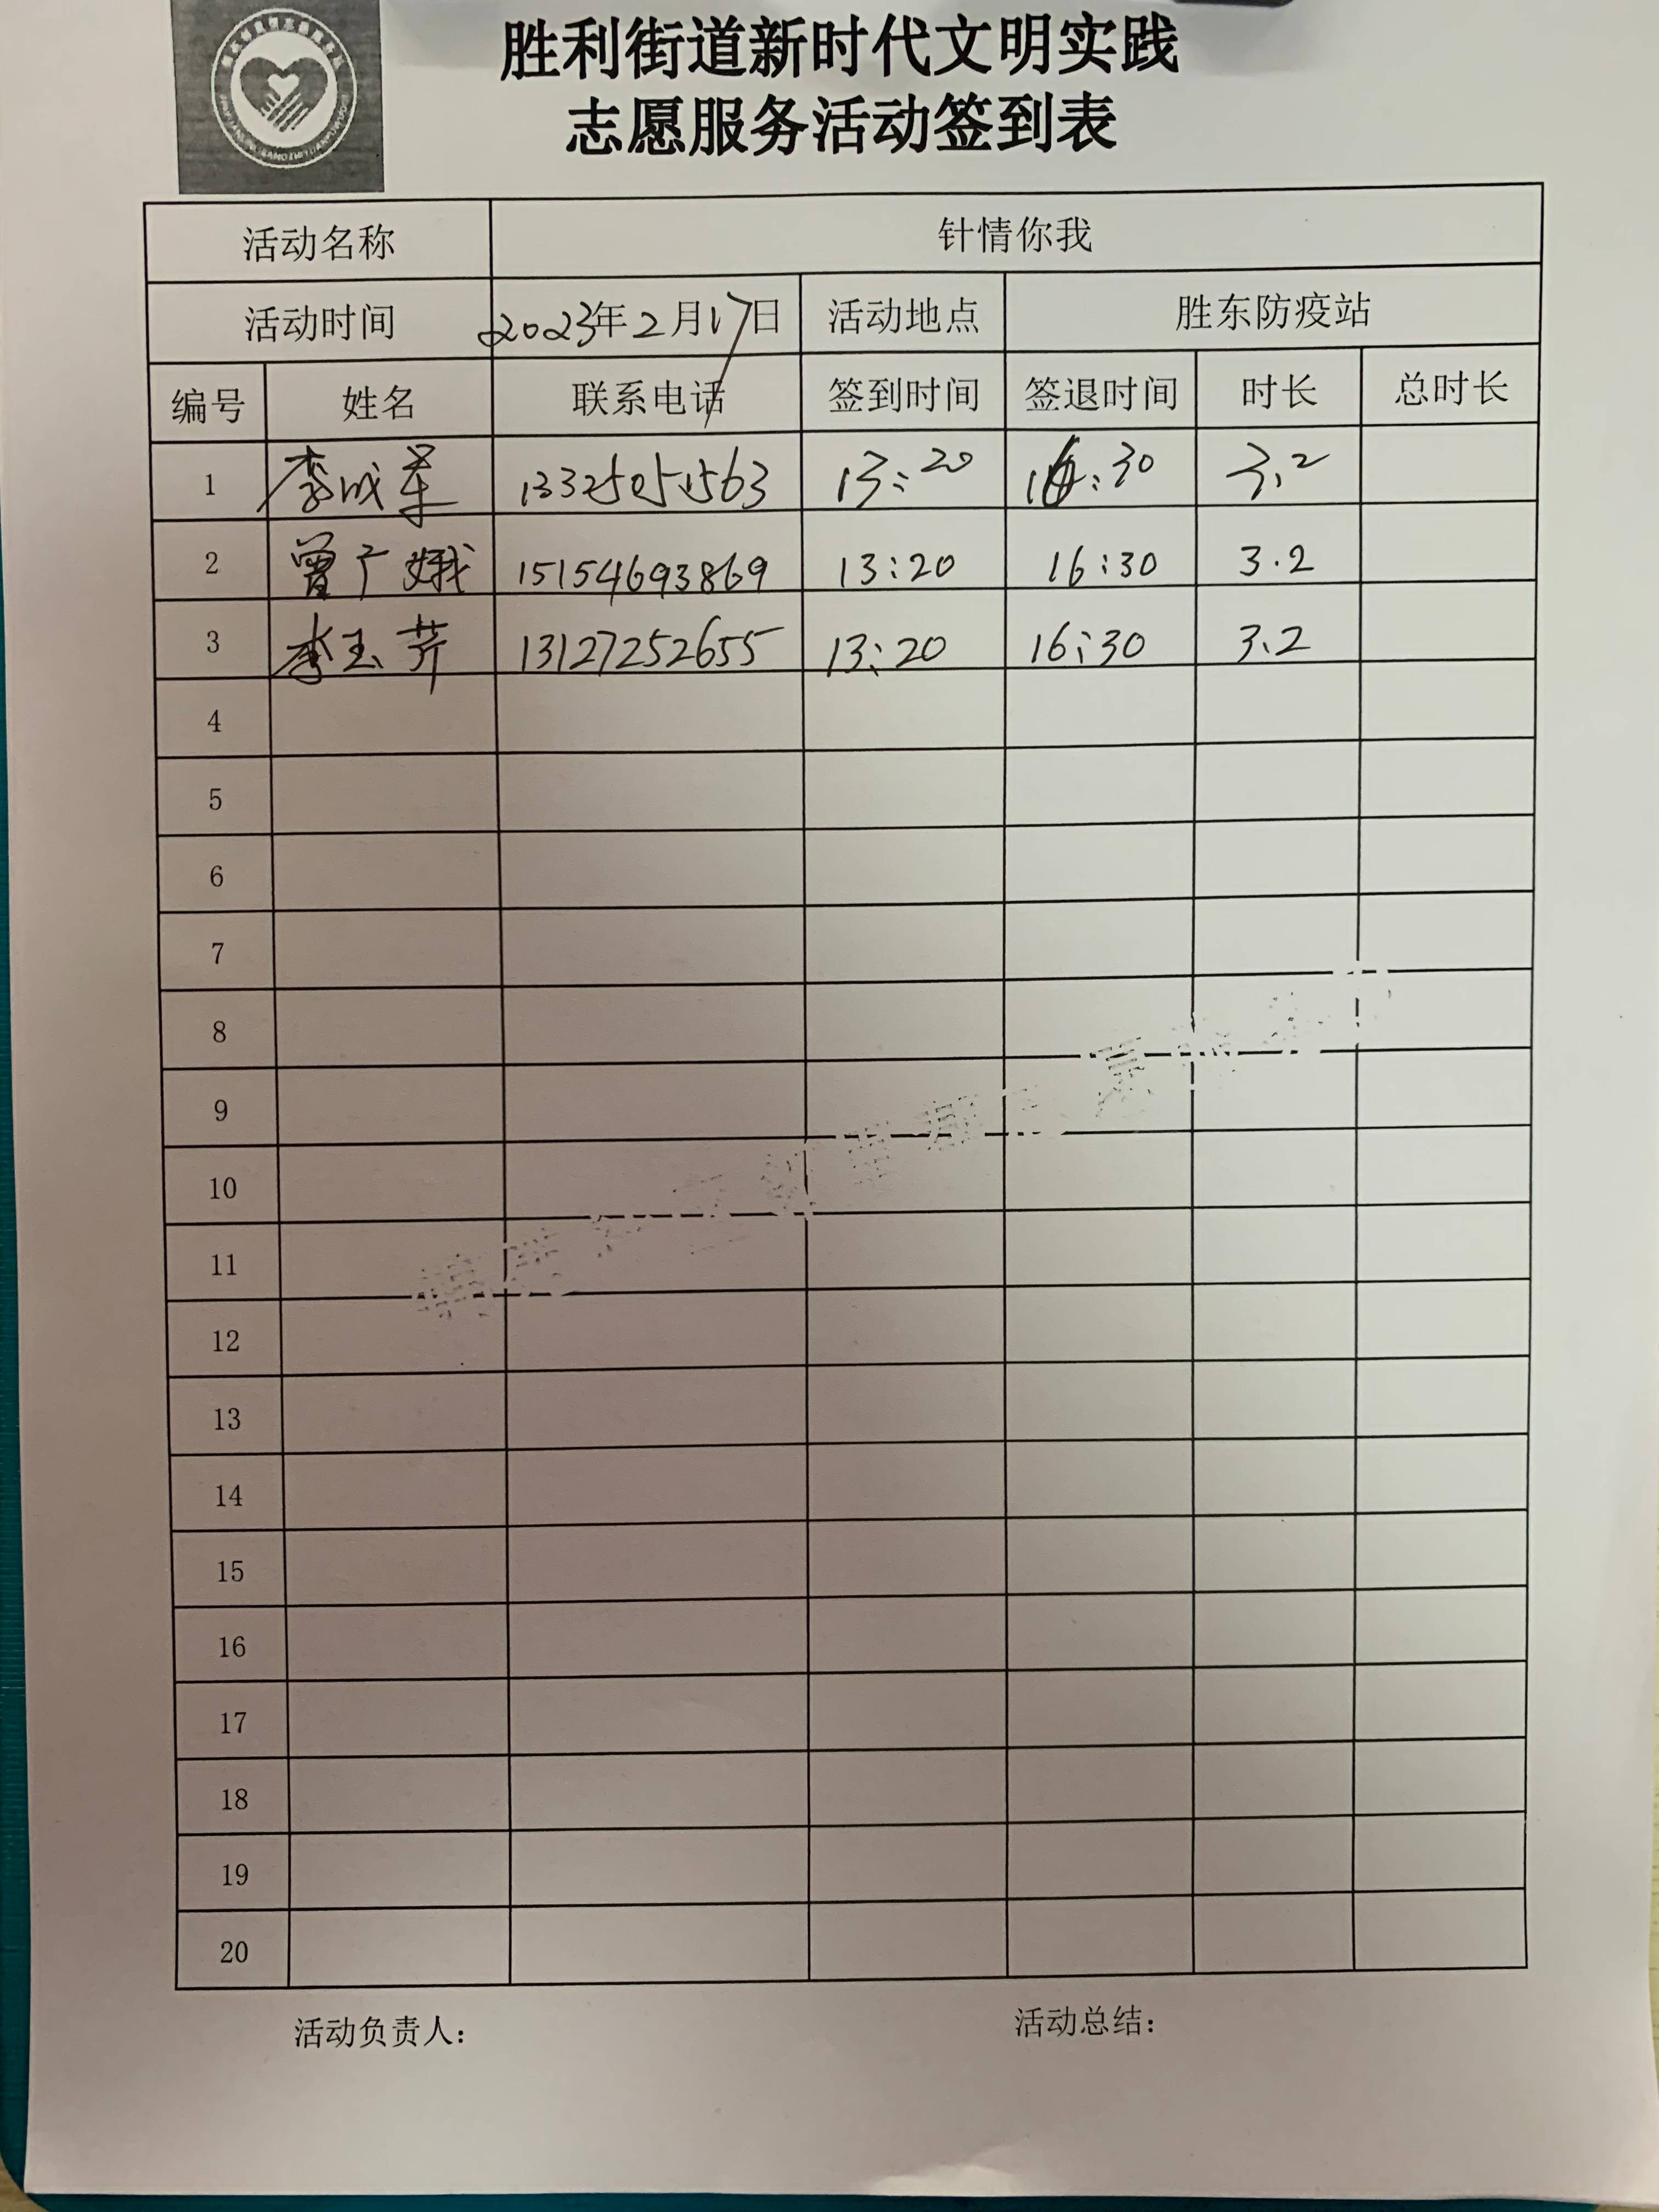 胜利街道新时代文明实践
志愿服务活动签到表
活动名称 针情你我
活动时间 2023年2月17日 活动地点 胜东防疫站
编号 姓名 联系电话 签到时间 签退时间 时长 总时长
1 李成军 13325051563 13:20 16:30 3.2
2 曾广娥 15154693869 13:20 16:30 3.2
3 李玉芹 13127252655 13:20 16:30 3.2
4
5
6
7
8
9
10
11
12
13
14
15
16
17
18
19
20
活动负责人: 活动总结: